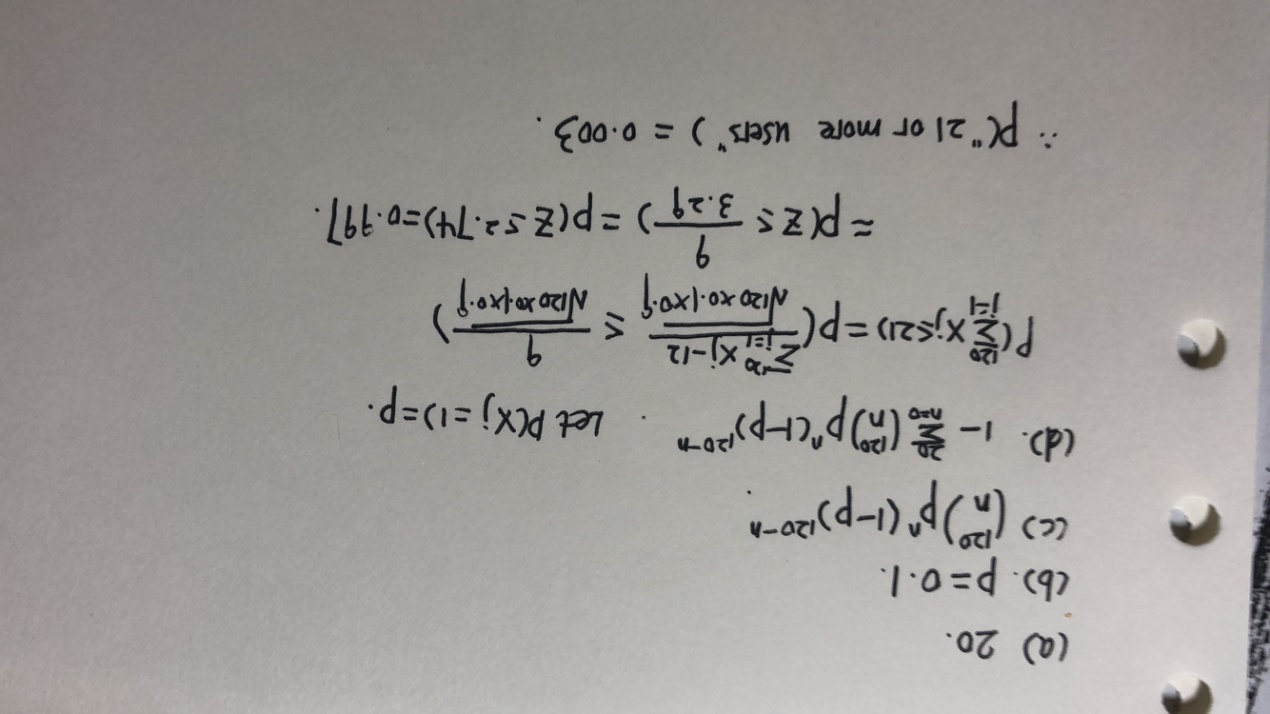 (a) 20.
(b). p=0.1.
(c) (120 n) pⁿ (1-p)¹²⁰⁻ⁿ.
(d). 1 - ²⁰∑ₙ₌₀ (120 n) pⁿ (1-p)¹²⁰⁻ⁿ. Let P(Xj=1)=p.
P(¹²⁰∑ⱼ₌₁ Xj≤21) = P( (¹²⁰∑ⱼ₌₁ Xj-12)/√(120×0.1×0.9) ≤ 9/√(120×0.1×0.9) )
≈ P(Z ≤ 9/3.29) = P(Z≤2.74)=0.997.
∴ P("21 or more users") = 0.003.